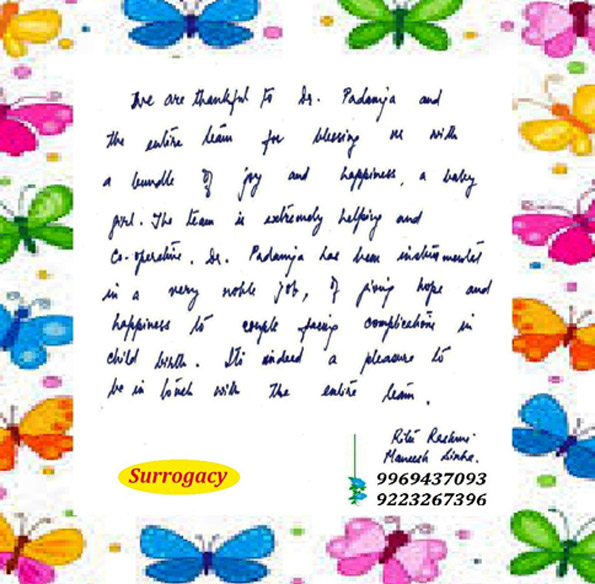 We are thankful to Dr. Padamja and
the entire team for blessing us with
a bundle of joy and happiness, a baby
girl. The team is extremely helping and
Co-operative. Dr. Padamja has been instrumental
in a very noble job, of giving hope and
happiness to couple facing complications in
child birth. Its indeed a pleasure to
be in touch with the entire team.
Ritu Rashmi
Maneesh Sinha.
Surrogacy
9969437093
9223267396